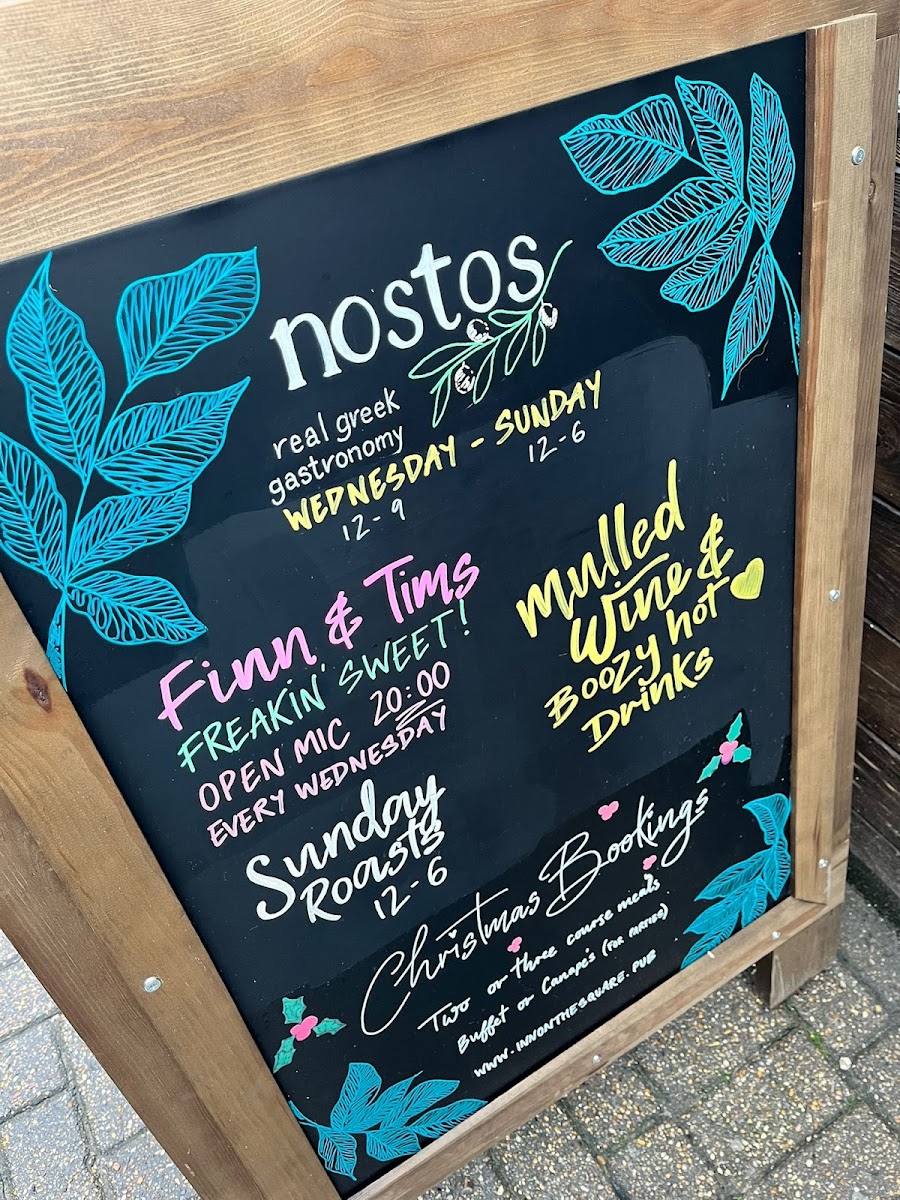 nostos
real greek
gastronomy
WEDNESDAY - SUNDAY
12 - 9
12 - 6
Finn & Tims
FREAKIN' SWEET!
OPEN MIC 20:00
EVERY WEDNESDAY
Mulled
Wine &
Boozy hot
Drinks
Sunday
Roasts
12 - 6
Christmas Bookings
Two or three course meals
Buffet or Canape's (FOR PARTIES)
WWW.INNONTHESQUARE.PUB